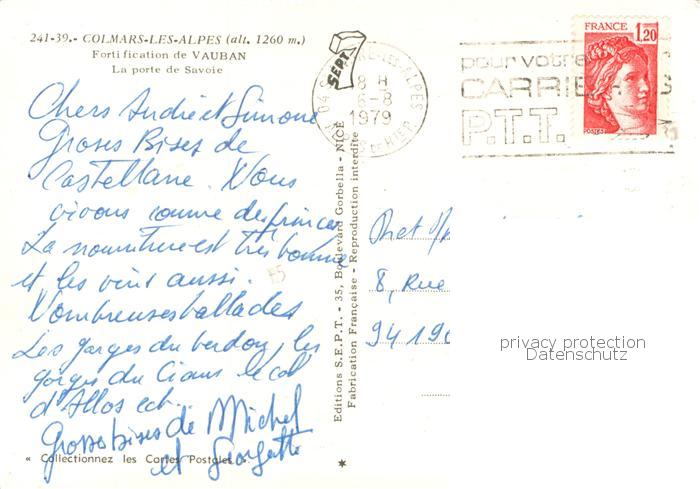 241-39.- COLMARS-LES-ALPES (alt. 1260 m.)
Fortification de VAUBAN
La porte de Savoie
Chers Andrée et Simone
Grosses Bises de
Castellane. Nous
vivons comme des princes
La nourriture est très bonne
et les vins aussi.
Nombreuses ballades
Les gorges du verdon, les
gorges du Cians le col
d'Allos ect...
Grosses bises de Michel
et Georgette
« Collectionnez les Cartes Postales ».
Editions S.E.P.T. - 35, Boulevard Gorbella - NICE
Fabrication Française - Reproduction interdite
SEPT
ALPES
04
8 H
6-8
1979
pour votre
CARRIE
P.T.T.
FRANCE 1,20
POSTES
8, Rue
94 190
privacy protection
Datenschutz